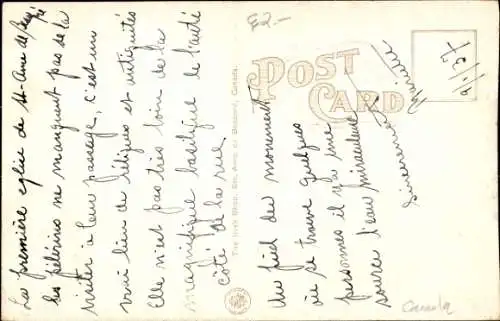 La première église de St-Anne de Beaupré
les pèlerins ne manquent pas de la
visiter à leur passage, c'est un
vrai lieu de reliques et antiquités
Elle n'est pas très loin de la
magnifique basilique de l'autre
côté de la rue.
The Irish Shop, Ste. Anne de Beaupré, Canada.
E2.-
POST
CARD
Au pied du monument
où se trouve quelques
personnes il y a une
source l'eau miraculeuse
Sincerement
9-1-37
Canada